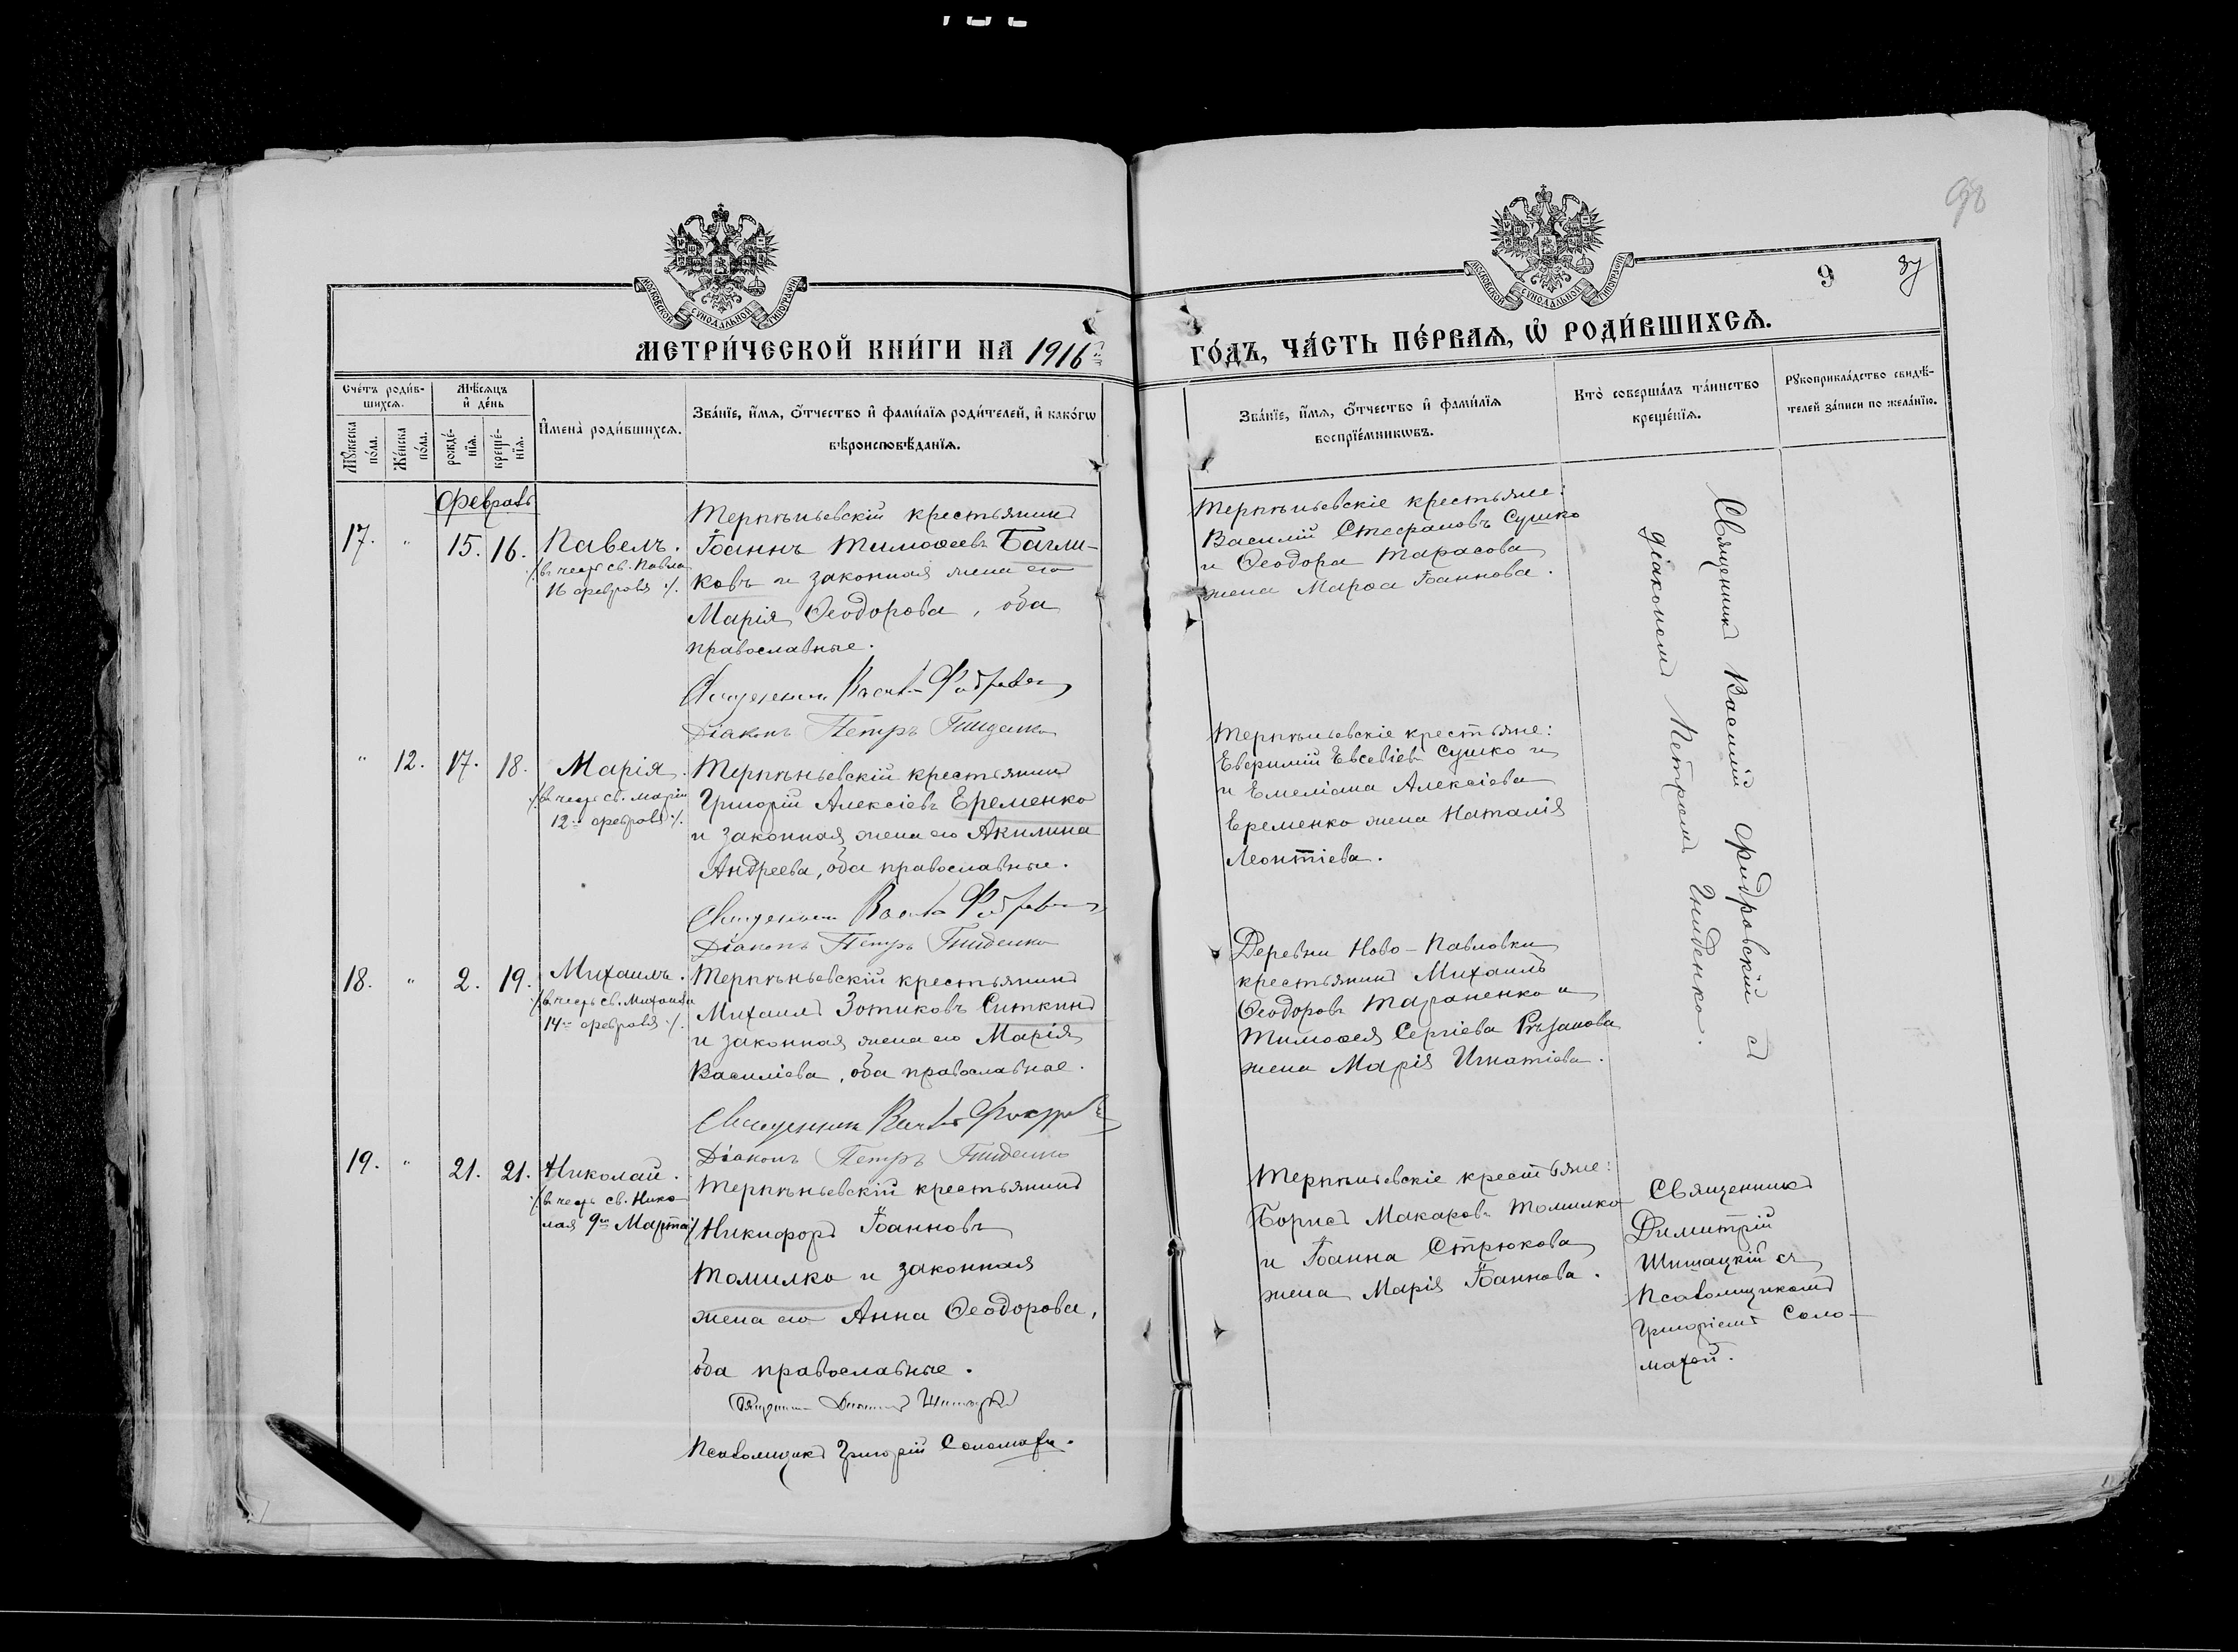 98
МОСКОВСКОЙ СѴНОДАЛЬНОЙ ТИПОГРАФІИ
МОСКОВСКОЙ СѴНОДАЛЬНОЙ ТИПОГРАФІИ
9
МЕТРИ́ЧЕСКОЙ КНИ́ГИ НА 1916
ГО́ДЪ, ЧА́СТЬ ПЕ́РВАѦ, Ѽ РОДИ́ВШИХСѦ.
Сче́тъ роди́в-
шихсѧ.
Мѣ́сѧцъ
и҆ де́нь
Мꙋ́жеска
по́ла.
Же́нска
по́ла.
рожде́-
нїѧ.
креще́-
нїѧ.
И҆мена̀ роди́вшихсѧ.
Зва́нїе, и҆́мѧ, ѻ҆́тчество и҆ фами́лїѧ роди́телей, и҆ како́гѡ
вѣроисповѣ́данїѧ.
Зва́нїе, и҆́мѧ, ѻ҆́тчество и҆ фами́лїѧ
воспрїе́мникѡвъ.
Кто̀ соверша́лъ та́инство
креще́нїѧ.
Рꙋкоприкла́дство свидѣ́-
телей за́писи по жела́нїю.
Февраль
17. " 15. 16.
Павелъ.
/въ честь св. Павла
16 февраля /.
Терпѣньевскій крестьянинъ
Іоаннъ Тимоѳеевъ Багли-
ковъ и законная жена его
Марія Ѳеодорова, оба
православные.
Священникъ
Діаконъ Петръ Гниденко
Терпѣньевскіе крестьяне:
Василій Стефановъ Сушко
и Ѳеодора Тарасова
жена Марѳа Іоаннова.
Священникъ Василій Фидровскій съ
діакономъ Петромъ Гниденко.
" 12. 17. 18.
Марія.
/въ честь св. Маріи
12го февраля /.
Терпѣньевскій крестьянинъ
Григорій Алексіевъ Еременко
и законная жена его Акилина
Андреева, оба православные.
Священникъ
Діаконъ Петръ Гниденко
Терпѣньевскіе крестьяне:
Евфимій Евсевіевъ Сушко и
и Емеліана Алексіева
Еременко жена Наталія
Леонтіева.
18. " 2. 19.
Михаилъ.
/въ честь св. Михаила
14го февраля /.
Терпѣньевскій крестьянинъ
Михаилъ Зотиковъ Ситкинъ
и законная жена его Марія
Василіева, оба православные.
Священникъ
Діаконъ Петръ Гниденко
Деревни Ново-Павловки
крестьянинъ Михаилъ
Ѳеодоровъ Тараненко и
Тимоѳея Сергіева Рѣзанова
жена Марія Игнатіева.
19. " 21. 21.
Николай.
/въ честь св. Нико-
лая 9го Марта/
Терпѣньевскій крестьянинъ
Никифоръ Іоанновъ
Томилко и законная
жена его Анна Ѳеодорова,
оба православные.
Священникъ Димитрій Шишацкій
Псаломщикъ Григорій Соломаха.
Терпѣньевскіе крестьяне:
Борисъ Макаровъ Томилко
и Іоанна Стрюкова
жена Марія Іоаннова.
Священникъ
Димитрій
Шишацкій съ
Псаломщикомъ
Григоріемъ Соло-
махой.